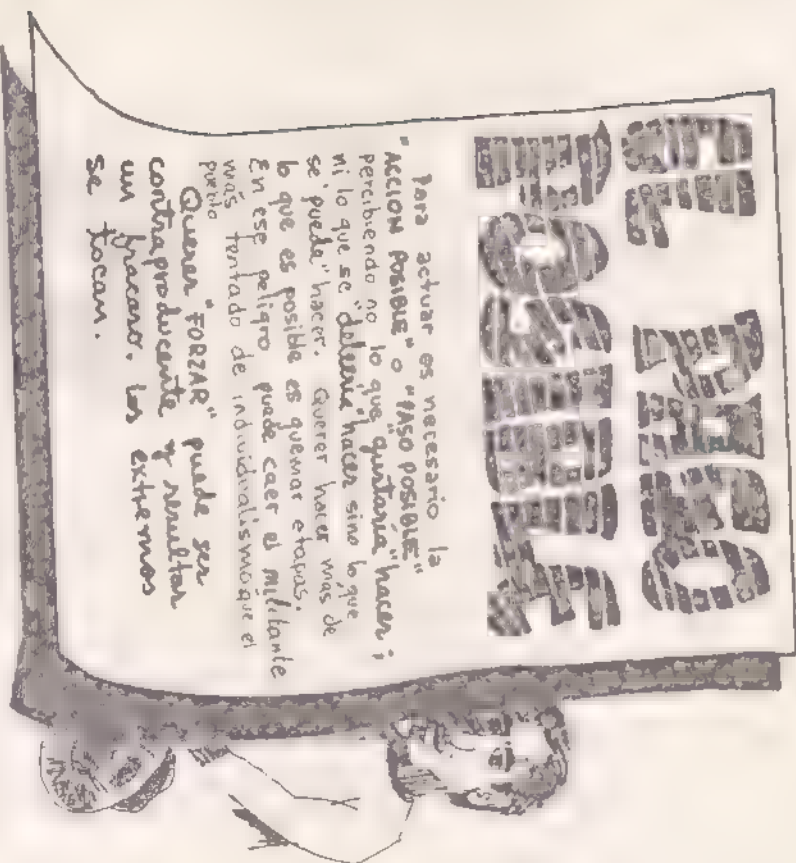 EL PASO
POSIBLE
Para actuar es necesario la
"ACCION POSIBLE" o "PASO POSIBLE"
percibiendo no lo que "gustaria" hacer;
ni lo que se "deberia" hacer sino lo que
se "puede" hacer. Querer hacer mas de
lo que es posible es quemar etapas.
En ese peligro puede caer el militante
más tentado de individualismo que el
pueblo
Querer "FORZAR" puede ser
contraproducente y resultar
un fracaso. Los extremos
se tocan.